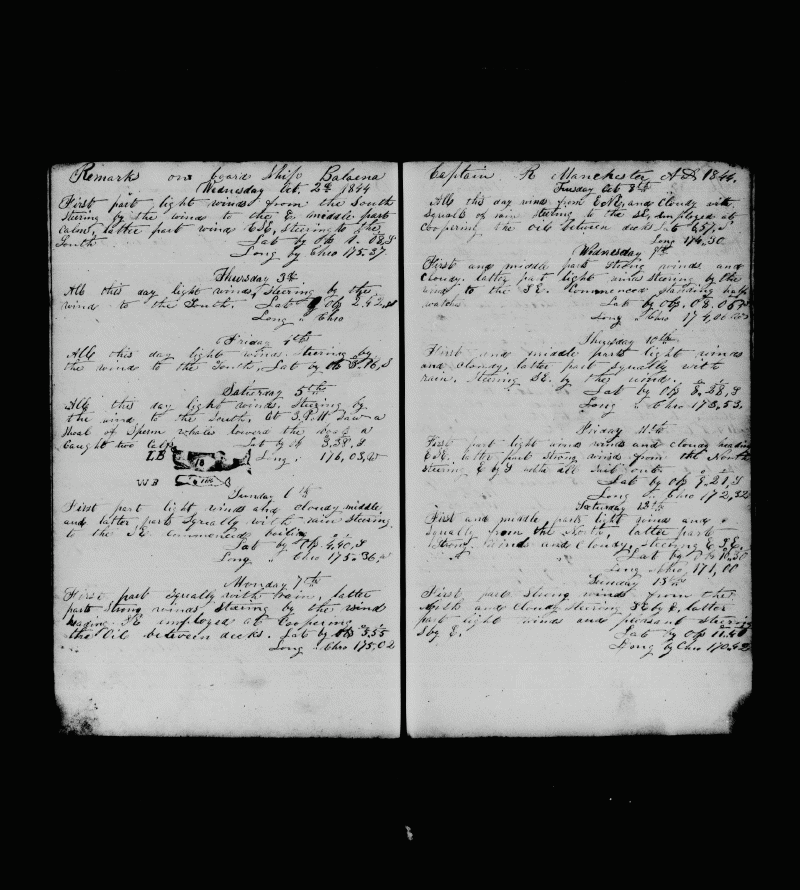 Remarks on board Ship Balaena
Wednesday Oct. 2d 1844
First part light winds from the South
steering by the wind to the E, middle part
Calm, latter part wind ESE, steering to the
South Lat by Ob
Long by Chro 175.37
Thursday 3th
All this day light winds, steering by the
wind to the South. Lat by Ob 2.42 S
Long " Chro
Friday 4th
All this day light winds steering by
the wind to the South, Lat by Ob 3.16, S
Saturday 5th
All this day light winds. Steering by
the wind to the South, at 3 P M Saw a
Shoal of Sperm whales lowered the boats &
Caught two Lat by Ob 3.58, S
Long : 176,03, W
LB
WB
Sunday 6th
First part light winds and cloudy middle
and latter parts squally with rain steering
to the SE commenced boiling
Lat by Ob 4,40, S
Long " Chro 175.36
Monday 7th
First part squally with rain, latter
part strong winds, steering by the wind
heading SE employed at Coopering
the Oil between decks. Lat by Ob 5.55
Long : Chro 175.02
Captain R Manchester AD 1844.
Tuesday Oct 8th
All this day wind from ENE, and Cloudy with
squalls of rain steering to the SE, employed at
Coopering the oil between decks Lat 6,57, S
Long 174.30
Wednesday 9th
First and middle parts strong winds and
Cloudy, latter part light winds steering by the
wind to the SE. Commenced standing
watches Lat by Ob, 08,05
Long " Chro 174,00
Thursday 10th
First and middle parts light winds
and cloudy, latter part squally with
rain, steering SE. by the wind.
Lat by Ob 8,28, S
Long " Chro 173,53.
Friday 11th
First part light winds and cloudy heading
ESE. latter part strong winds from the North
steering E by S with all sail out
Lat by Ob 9,21, S
Long " Chro 172,32
Saturday 12th
First and middle parts light winds and
squally from the North, latter part
strong winds and Cloudy, steering E.SE.
Lat by Ob 10,30
Long Chro, 171,00
Sunday 13th
First part strong winds from the
North and Cloudy steering SE by E. latter
part light winds and pleasant steering
S by E. Lat by Ob 11.40
Long by Chro 170.42